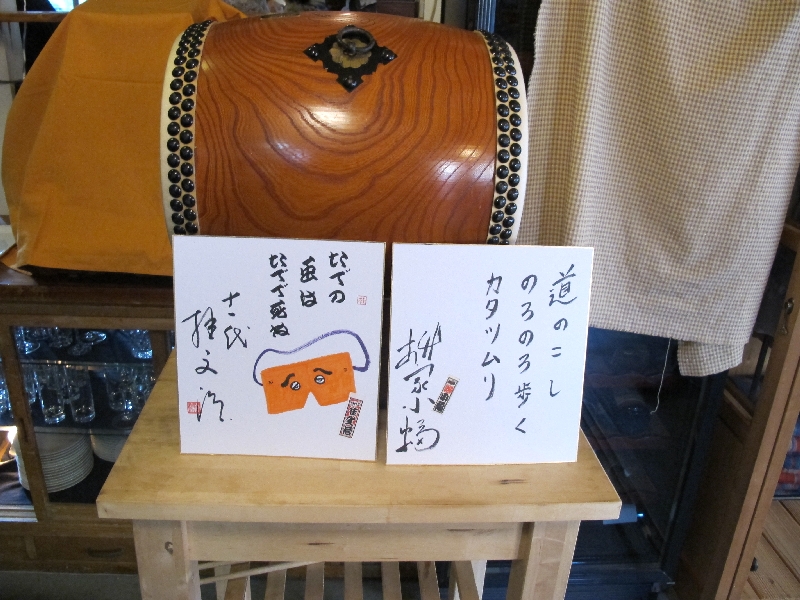 たでの
虫は
たでで死ぬ
十一代
桂文治
道のこし
のろのろ歩く
カタツムリ
柳家小蝠